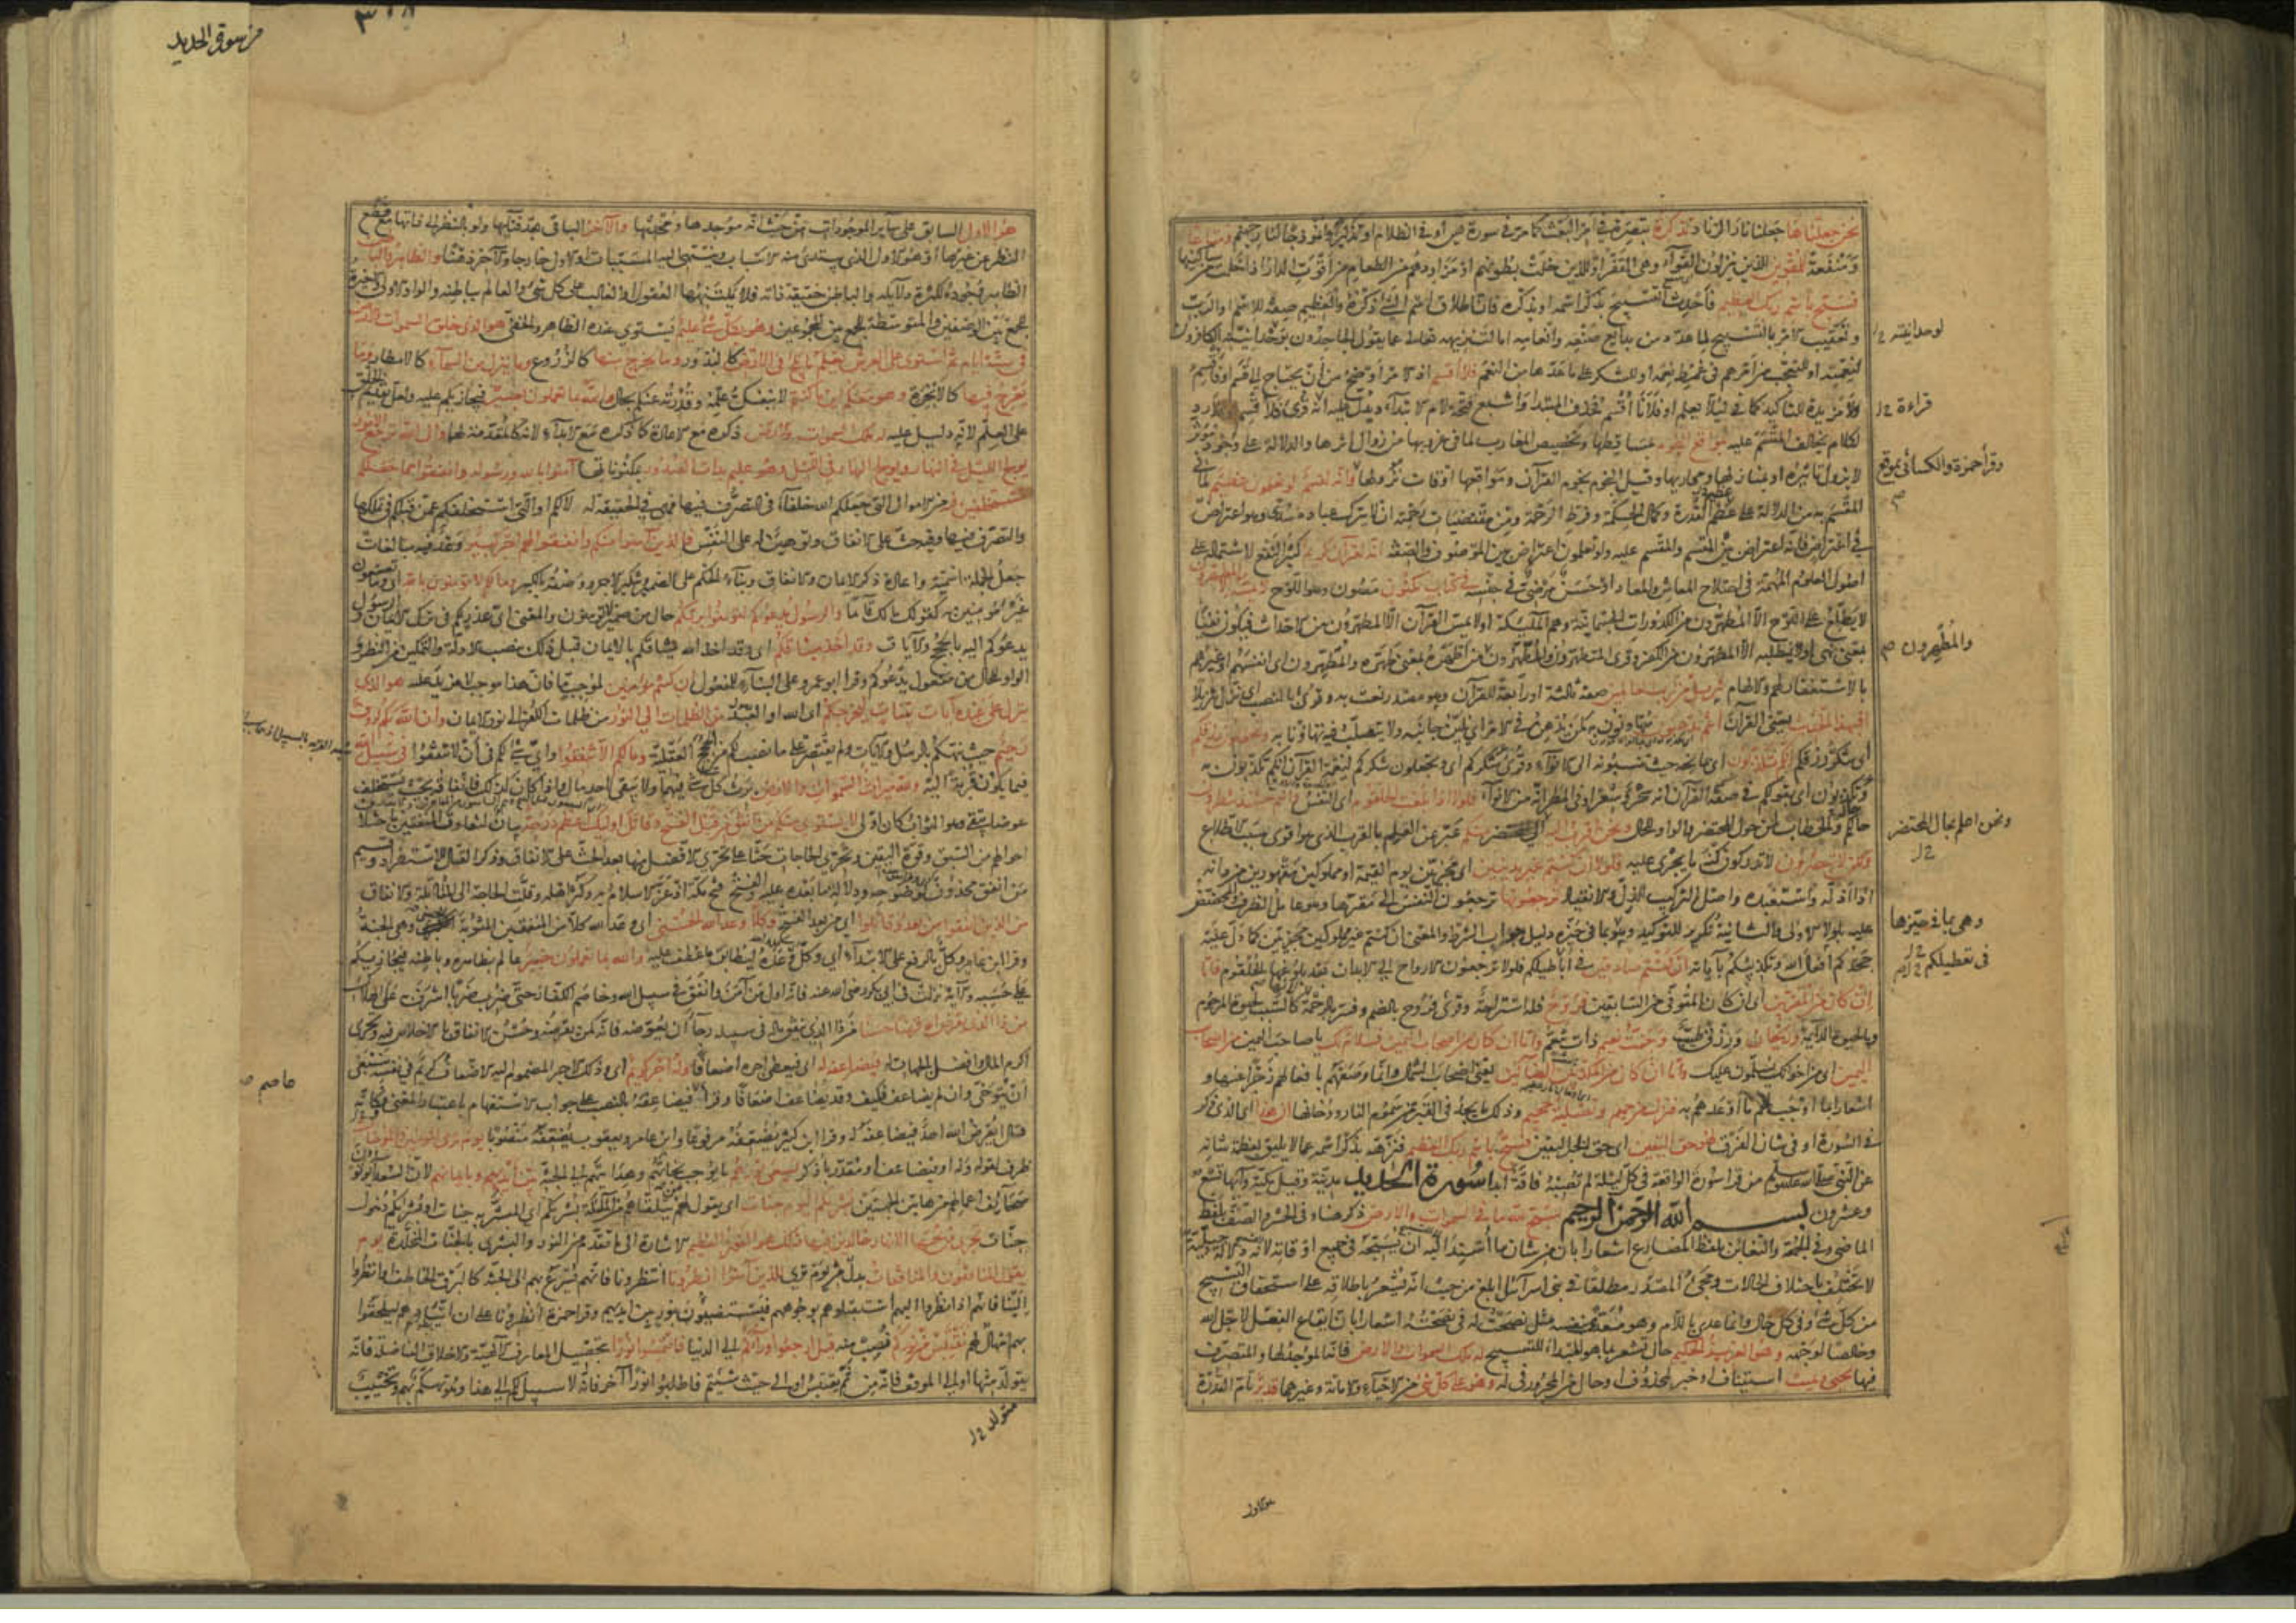 نحن جعلناها جعلنا نار الزناد تذكرة تبصرة في امر البعث كما مر في سورة يس او في الظلام او تذكيرا وانموذجا لنار جهنم ومتاعا
ومنفعة للمقوين للذين ينزلون القواء وهي القفر او للذين خلت بطونهم او مزاودهم من الطعام من اقوت الدار اذا خلت من ساكنيها
فسبح باسم ربك العظيم فأحدث التسبيح بذكر اسمه او بذكره فان اطلاق اسم الشيء ذكره والعظيم صفة للاسم او الرب
وتعقيب الامر بالتسبيح لما عدد من بدايع صنعه وانعامه اما لتنزيهه تعالى عما يقول الجاحدون بوحدانيته الكافرون
لنعمته او للتعجب من امرهم في غمط نعمه او للشكر على ما عدها من النعم فلا اقسم اذ الامر اوضح من ان يحتاج الى قسم او فاقسم
ولا مزيدة للتاكيد كما في لئلا يعلم او فلانا اقسم فحذف المبتدا واشبع فتحة لام الابتداء ويدل عليه انه قرئ فلأقسم او فلا رد
لكلام يخالف المقسم عليه بمواقع النجوم بمساقطها وتخصيص المغارب لما في غروبها من زوال اثرها والدلالة على وجود مؤثر
لا يزول تاثيره او بمنازلها ومجاريها وقيل النجوم نجوم القرآن ومواقعها اوقات نزولها وانه لقسم لو تعلمون عظيم لما في
المقسم به من الدلالة على عظم القدرة وكمال الحكمة وفرط الرحمة ومن مقتضيات رحمته ان لا يترك عباده سدى وهو اعتراض
في اعتراض فانه اعتراض بين القسم والمقسم عليه ولو تعلمون اعتراض بين الموصوف والصفة انه لقرآن كريم كثير النفع لاشتماله على
اصول العلوم المهمة في اصلاح المعاش والمعاد او حسن مرضي في جنسه في كتاب مكنون مصون وهو اللوح لا يمسه الا المطهرون
لا يطلع على اللوح الا المطهرون من الكدورات الجسمانية وهم الملائكة او لا يمس القرآن الا المطهرون من الاحداث فيكون نفيا
بمعنى نهي او لا يطلبه الا المطهرون من الكفر وقرئ المتطهرون والمطهرون من اطهره بمعنى طهره والمطهرون اي انفسهم او غيرهم
بالاستغفار لهم والالهام تنزيل من رب العالمين صفة ثالثة او رابعة للقرآن وهو مصدر نعت به وقرئ بالنصب اي نزل تنزيلا
افبهذا الحديث يعني القرآن انتم مدهنون متهاونون به كمن يدهن في الامر اي يلين جانبه ولا يتصلب فيه تهاونا به وتجعلون رزقكم
اي شكر رزقكم انكم تكذبون اي بمانحه حيث تنسبونه الى الانواء وقرئ شكركم اي وتجعلون شكركم لنعمة القرآن انكم تكذبون به
وتكذبون اي بقولكم في صفة القرآن انه سحر وشعر او في المطر انه من الانواء فلولا اذا بلغت الحلقوم اي النفس وانتم حينئذ تنظرون
حالكم والخطاب لمن حول المحتضر والواو للحال ونحن اقرب اليه الى المحتضر منكم عبر عن العلم بالقرب الذي هو اقوى سبب الاطلاع
ولكن لا تبصرون لا تدركون كنه ما يجري عليه فلولا ان كنتم غير مدينين اي مجزيين يوم القيمة او مملوكين مقهورين من دانه
اذا اذله واستعبده واصل التركيب للذل والانقياد ترجعونها ترجعون النفس الى مقرها وهو عامل الظرف والمحضض
عليه بلولا الاولى والثانية تكرير للتوكيد وهو بما في حيزه دليل جواب الشرط والمعنى ان كنتم غير مملوكين مجزيين كما دل عليه
جحدكم افعال الله وتكذيبكم بآياته ان كنتم صادقين في اباطيلكم فلولا ترجعون الارواح الى الابدان بعد بلوغها الحلقوم فاما
ان كان من المقربين اي ان كان المتوفى من السابقين فروح فله استراحة وقرئ فروح بالضم وفسر بالرحمة لانها كالسبب لحيوة المرحوم
وبالحيوة الدائمة وريحان ورزق طيب وجنت نعيم ذات تنعم واما ان كان من اصحاب اليمين فسلام لك يا صاحب اليمين من اصحاب
اليمين اي من اخوانك يسلمون عليك واما ان كان من المكذبين الضالين يعني اصحاب الشمال وانما وصفهم بافعالهم زجرا عنها و
اشعارا بما اوجب لهم ما اوعدهم به فنزل من حميم وتصلية جحيم وذلك ما يجد في القبر من سموم النار ودخانها ان هذا اي الذي ذكر
في السورة او في شان الفرق لهو حق اليقين اي حق الخبر اليقين فسبح باسم ربك العظيم فنزهه بذكر اسمه عما لا يليق بعظمة شانه
عن النبي صلى الله عليه وسلم من قرا سورة الواقعة في كل ليلة لم تصبه فاقة ابدا سورة الحديد مدنية وقيل مكية وآيها تسع
وعشرون بسم الله الرحمن الرحيم سبح لله ما في السموات والارض ذكر هنا وفي الحشر والصف بلفظ
الماضي وفي الجمعة والتغابن بلفظ المضارع اشعارا بان من شان ما اسند اليه ان يسبحه في جميع اوقاته لانه دلالة جبلية
لا تختلف باختلاف الحالات ومجيء المصدر مطلقا في بني اسرائيل ابلغ من حيث انه يشعر باطلاقه على استحقاق التسبيح
من كل شيء وفي كل حال وانما عدي باللام وهو معدى بنفسه مثل نصحت له في نصحته اشعارا بان ايقاع الفعل لاجل الله
وخالصا لوجهه وهو العزيز الحكيم حال تشعر بما هو المبدأ للتسبيح له ملك السموات والارض فانه الموجد لها والمتصرف
فيها يحيي ويميت استيناف او خبر لمحذوف او حال من المجرور في له وهو على كل شيء من الاحياء والاماتة وغيرهما قدير تام القدرة
لوحدانيته
قراءة
وقرأ حمزة والكسائي بموقع
والمطهرون
ونحن اعلم بحال المحتضر
وهي بما في حيزها
في تعطيلكم
هو الاول
من سورة الحديد
٣١٨
هو الاول السابق على سائر الموجودات من حيث انه موجدها ومحدثها والآخر الباقي بعد فنائها ولو بالنظر الى ذاتها مع قطع
النظر عن غيرها او هو الاول الذي يبتدئ منه الاسباب وينتهي اليه المسببات او الاول خارجا والآخر ذهنا والظاهر والباطن
الظاهر وجوده لكثرة دلائله والباطن حقيقة ذاته فلا يكتنهها العقول او الغالب على كل شيء والعالم بباطنه والواو الاولى والاخيرة
للجمع بين الوصفين والمتوسطة للجمع بين المجموعين وهو بكل شيء عليم يستوي عنده الظاهر والخفي هو الذي خلق السموات والارض
في ستة ايام ثم استوى على العرش يعلم ما يلج في الارض كالبذور وما يخرج منها كالزروع وما ينزل من السماء كالامطار وما
يعرج فيها كالابخرة وهو معكم اين ما كنتم لا ينفك علمه وقدرته عنكم بحال والله بما تعملون بصير فيجازيكم عليه ولعل تقديم الخلق
على العلم لانه دليل عليه له ملك السموات والارض ذكره مع الاعادة كما ذكره مع الابداء لانه كالمقدمة لهما والى الله ترجع الامور
يولج الليل في النهار ويولج النهار في الليل وهو عليم بذات الصدور بمكنوناتها آمنوا بالله ورسوله وانفقوا مما جعلكم
مستخلفين فيه من الاموال التي جعلكم الله خلفاء في التصرف فيها فهي في الحقيقة له لا لكم او التي استخلفكم عمن قبلكم في تملكها
والتصرف فيها وفيه حث على الانفاق وتهوين له على النفس فالذين آمنوا منكم وانفقوا لهم اجر كبير وعد فيه مبالغات
جعل الجملة اسمية واعادة ذكر الايمان والانفاق وبناء الحكم على الضمير وتنكير الاجر ووصفه بالكبير وما لكم لا تؤمنون بالله اي وما تصنعون
غير مؤمنين به كقولك مالك قائما والرسول يدعوكم لتؤمنوا بربكم حال من ضمير لا تؤمنون والمعنى اي عذر لكم في ترك الايمان والرسول
يدعوكم اليه بالحجج والآيات وقد اخذ ميثاقكم اي وقد اخذ الله ميثاقكم بالايمان قبل ذلك بنصب الادلة والتمكين من النظر و
الواو للحال من مفعول يدعوكم وقرا ابو عمرو على البناء للمفعول ان كنتم مؤمنين لموجب ما فان هذا موجب لا مزيد عليه هو الذي
ينزل على عبده آيات بينات ليخرجكم اي الله او العبد من الظلمات الى النور من ظلمات الكفر الى نور الايمان وان الله بكم لرؤف
رحيم حيث نبهكم بالرسل والآيات ولم يقتصر على ما نصب لكم من الحجج العقلية وما لكم الا تنفقوا واي شيء لكم في ان لا تنفقوا في سبيل الله
فيما يكون قربة اليه ولله ميراث السموات والارض يرث كل شيء فيهما ولا يبقى لاحد مال واذا كان كذلك فانفاقه بحيث يستخلف
عوضا يبقى وهو الثواب كان اولى لا يستوي منكم من انفق من قبل الفتح وقاتل اولئك اعظم درجة بيان لتفاوت المنفقين باختلاف
احوالهم من السبق وقوة اليقين وتحري الحاجات حثا على تحري الافضل منها بعد الحث على الانفاق وذكر القتال للاستطراد وقسيم
من انفق محذوف لوضوحه ودلالة ما بعده عليه والفتح فتح مكة اذ عز الاسلام به وكثر اهله وقلت الحاجة الى المقاتلة والانفاق
من الذين انفقوا من بعد وقاتلوا اي من بعد الفتح وكلا وعد الله الحسنى اي وعد الله كلا من المنفقين المثوبة الحسنى وهي الجنة
وقرا ابن عامر وكل بالرفع على الابتداء اي وكل وعده ليطابق ما عطف عليه والله بما تعملون خبير عالم بظاهره وباطنه فيجازيكم
على حسبه والآية نزلت في ابي بكر رضي الله عنه فانه اول من آمن وانفق في سبيل الله وخاصم الكفار حتى ضرب ضربا اشرف على الهلاك
من ذا الذي يقرض الله قرضا حسنا من ذا الذي ينفق ماله في سبيله رجاء ان يعوضه فانه كمن يقرضه وحسن الانفاق بالاخلاص فيه وتحري
اكرم المال وافضل الجهات له فيضاعفه له اي فيعطي اجره اضعافا وله اجر كريم اي وذلك الاجر المضموم اليه الاضعاف كريم في نفسه ينبغي
ان يتوخى وان لم يضاعف فكيف وقد يضاعف اضعافا وقرا فيضاعفه بالنصب على جواب الاستفهام باعتبار المعنى فكانه
قال ايقرض الله احد فيضاعفه له وقرا ابن كثير فيضعفه مرفوعا وابن عامر ويعقوب فيضعفه منصوبا يوم ترى المؤمنين والمؤمنات
ظرف لقوله وله او فيضاعف او مقدر باذكر يسعى نورهم ما يوجب نجاتهم وهدايتهم الى الجنة بين ايديهم وبايمانهم لان السعداء يؤتون
صحائف اعمالهم من هاتين الجهتين بشريكم اليوم جنات اي يقول لهم من يتلقاهم من الملائكة بشريكم اي المبشر به جنات او بشريكم دخول
جنات تجري من تحتها الانهار خالدين فيها ذلك هو الفوز العظيم الاشارة الى ما تقدم من النور والبشرى بالجنات المخلدة يوم
يقول المنافقون والمنافقات بدل من يوم ترى للذين آمنوا انظرونا انتظرونا فانهم يسرع بهم الى الجنة كالبرق الخاطف او انظروا
الينا فانهم اذا نظروا اليهم استقبلوهم بوجوههم فيستضيئون بنور بين ايديهم وقرا حمزة انظرونا على ان اتئادهم ليلحقوا
بهم امهال لهم نقتبس من نوركم نصب منه قيل ارجعوا وراءكم الى الدنيا فالتمسوا نورا بتحصيل المعارف الالهية والاخلاق الفاضلة فانه
يتولد منها او الى الموقف فانه من ثم يقتبس او الى حيث شئتم فاطلبوا نورا آخر فانه لا سبيل لكم الى هذا وهو تهكم بهم وتخييب
عاصم